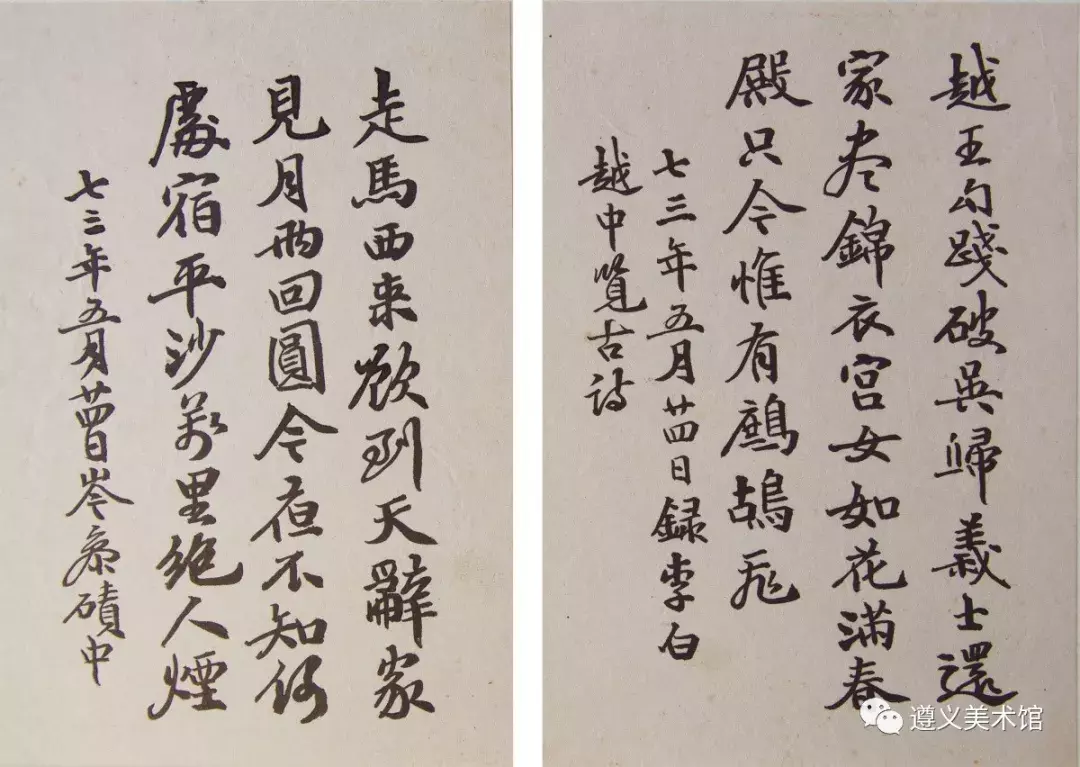 越王勾踐破吳歸義士還
家尽錦衣宮女如花滿春
殿只今惟有鷓鴣飛
七三年五月廿四日録李白
越中覽古詩
走馬西来欲到天辭家
見月兩回圓今夜不知何
處宿平沙萬里絶人煙
七三年五月廿四日岑参磧中
遵义美术馆